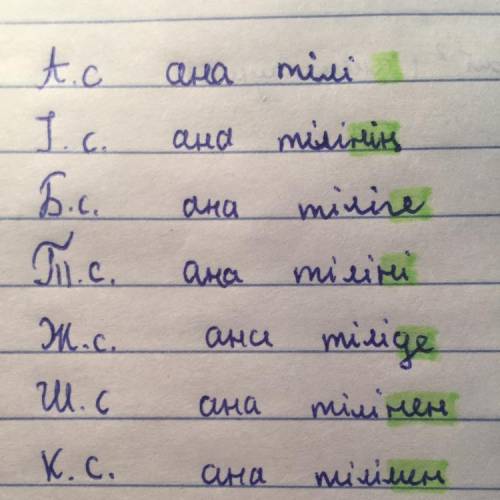 А.с ана тілі
І.с. ана тілінің
Б.с. ана тіліге
Т.с. ана тіліні
Ж.с. ана тіліде
Ш.с ана тілінен
К.с. ана тілімен